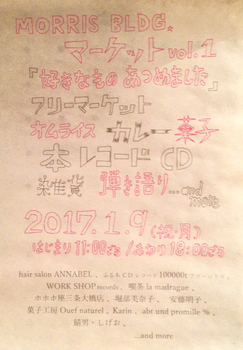 MORRIS BLDG.
マーケット vol.1
『好きなもの あつめました』
フリーマーケット
オムライス カレー 菓子
本 レコード CD
雑貨 弾き語り...and more
2017.1.9 (祝・月)
はじまり 11:00 / おわり 18:00
hair salon ANNABEL、ふるもCDレコード 100000t
WORK SHOP records、喫茶 la madrague、
ホホホ座三条大橋店、堀部美奈子、安藤明子、
菓子工房 Oeuf naturel、Karin、abt und promille %、
猫町・しげお、
...and more